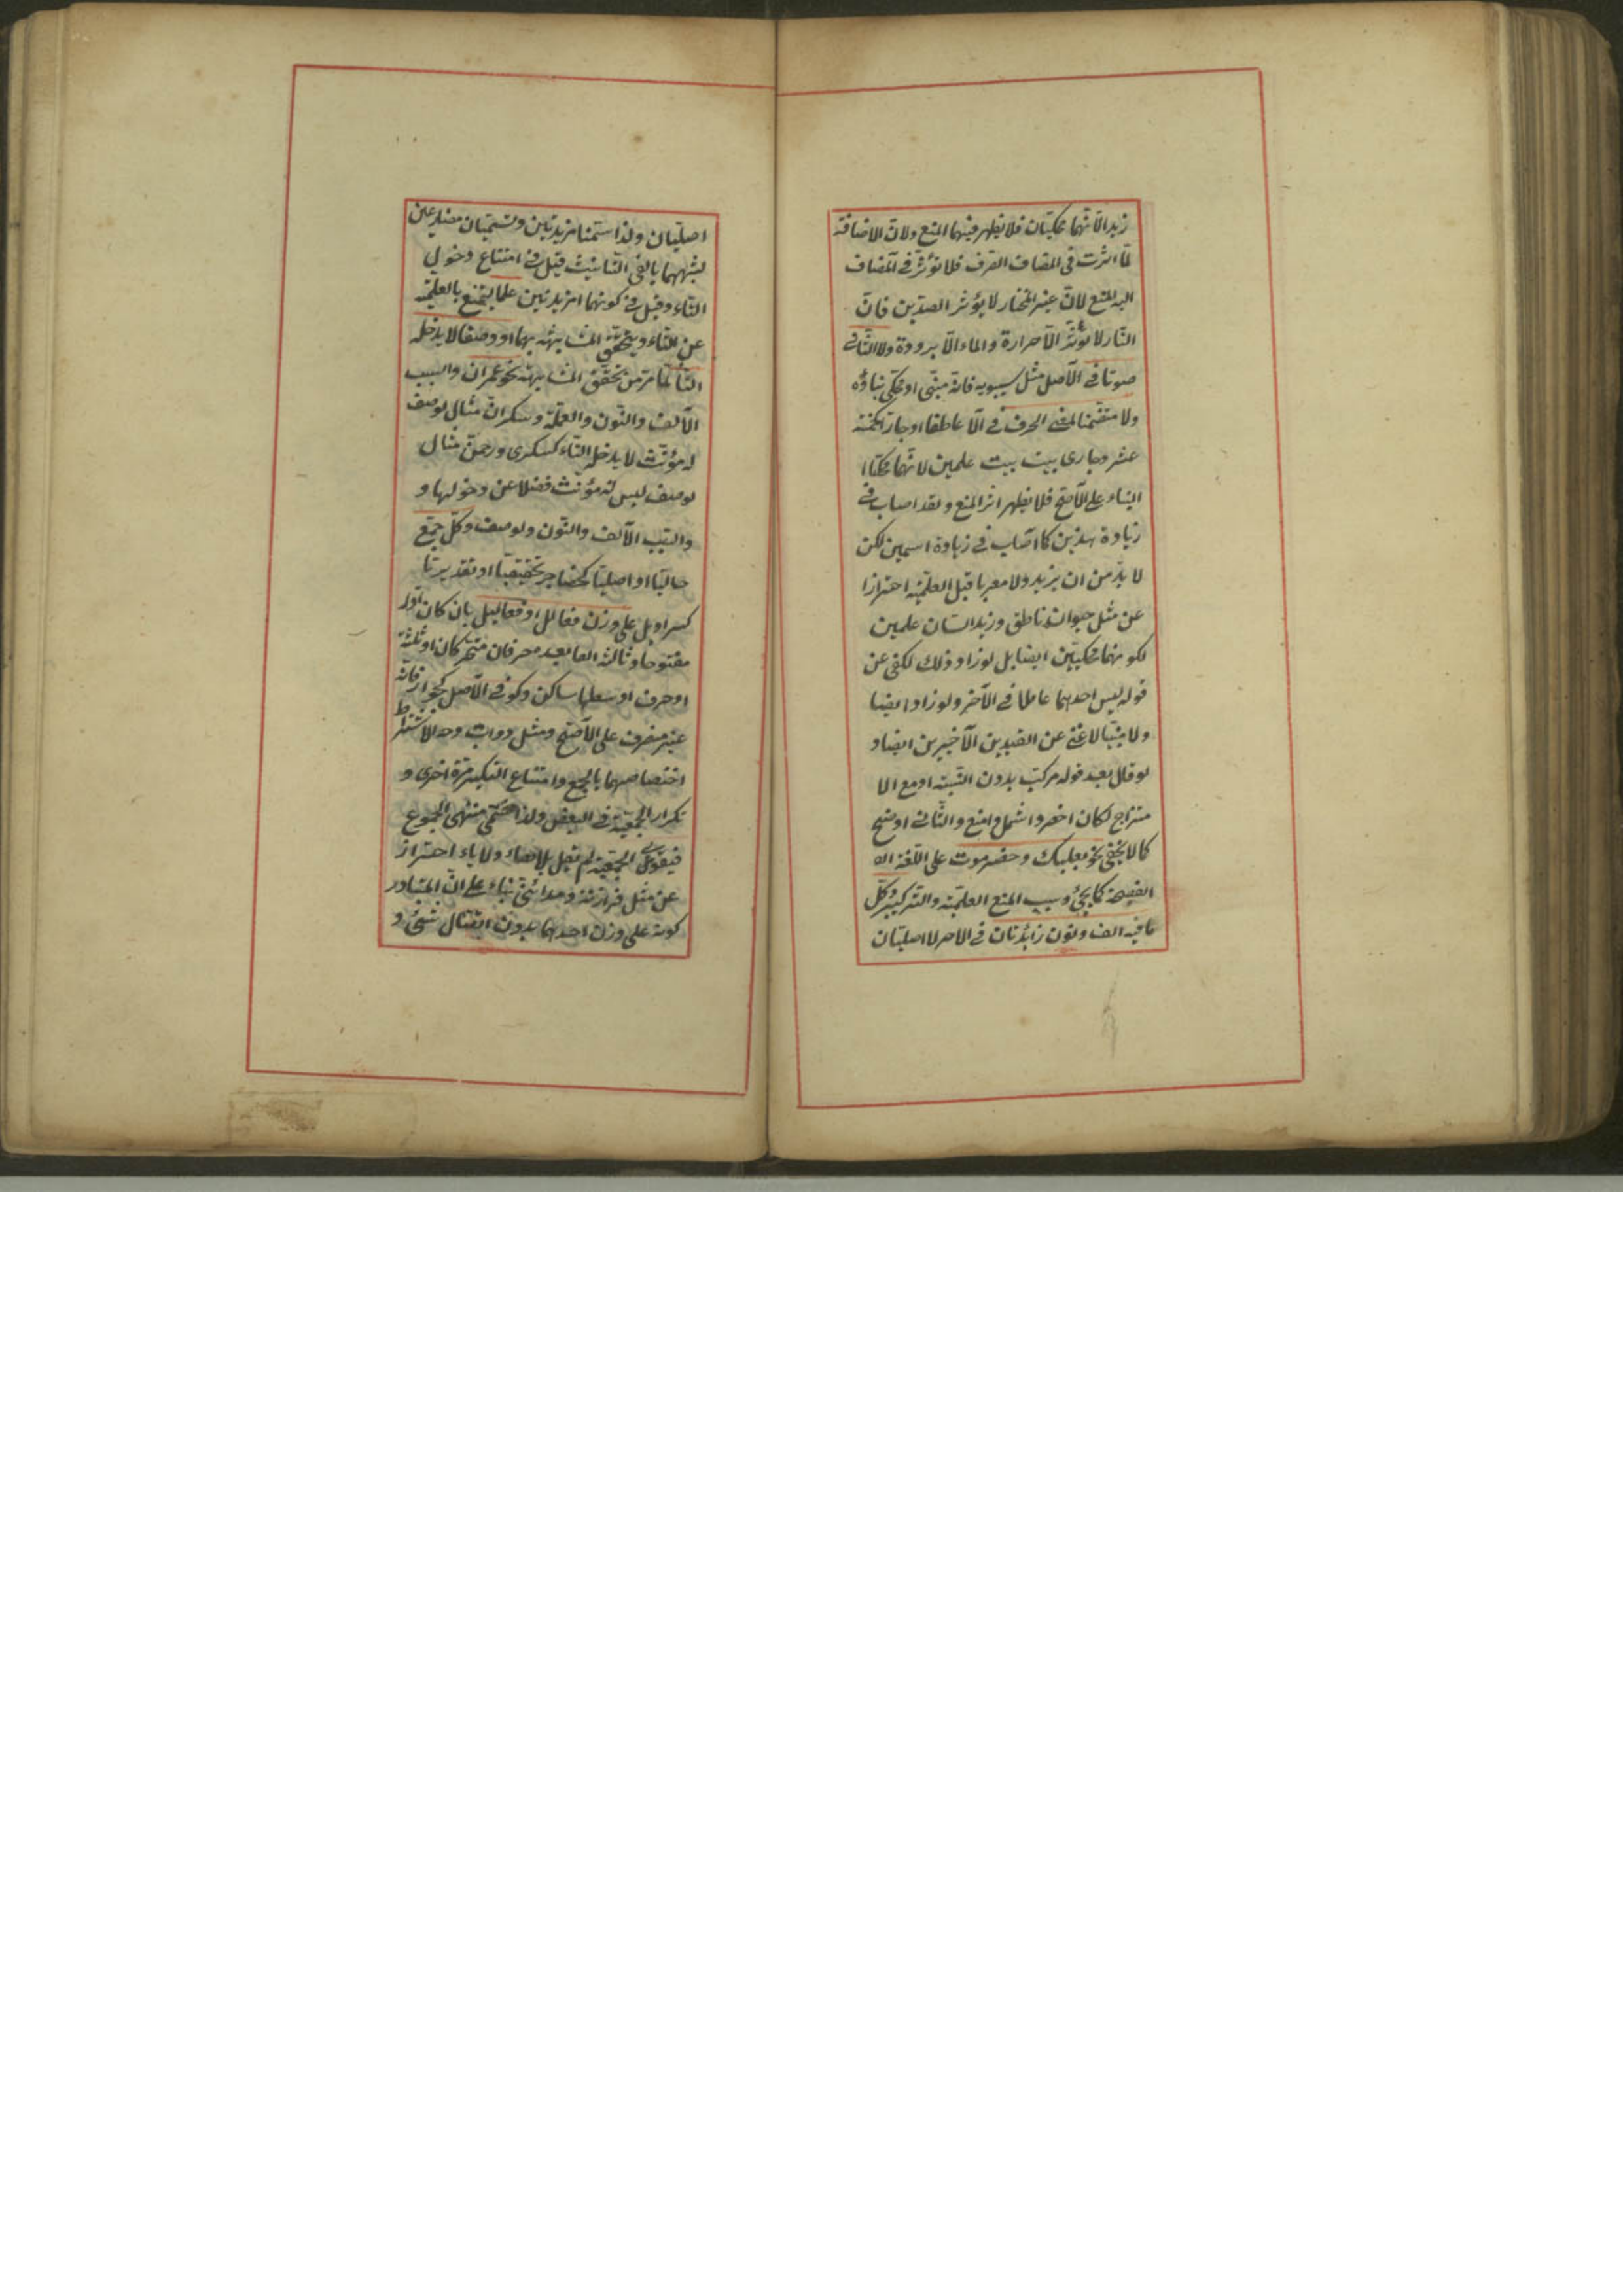 زيد الا انهما محكيتان فلا يظهر فيهما المنع ولان الاضافة
لما اثرت في المضاف الصرف فلا تؤثر في المضاف
اليه المنع لان غير المختار لا يؤثر الضدين فان
النار لا تؤثر الا حرارة والماء الا برودة ولا الثاني
صوتا في الاصل مثل سيبويه فانه مبني او محكي بناؤه
ولا متضمنا لمعنى الحرف في الا عاطفا او جارا كخمسة
عشر وجاري بيت بيت علمين لانهما محكيا
البناء على الاصح فلا يظهر اثر المنع ولقد اصاب في
زيادة هذين كما اصاب في زيادة اسمين لكن
لا بد من ان يزيد ولا معربا قبل العلمية احترازا
عن مثل حيوان ناطق وزيد انسان علمين
لكونهما محكيين ايضا بل لو زاد ذلك لكفى عن
قوله ليس احدهما عاملا في الآخر ولو زاد ايضا
ولا مبنيا لاغنى عن القيدين الاخيرين ايضا و
لو قال بعد قوله مركب بدون النسبة او مع الا
متزاج لكان اخصر واشمل وامنع والثاني اوضح
كما لا يخفى نحو بعلبك وحضرموت على اللغة ال
الفصيحة كما يجئ وسبب المنع العلمية والتركيب وكل
ما فيه الف ونون زائدتان في الآخر لا اصليتان
اصليتان ولذا سمتا مزيدتين وتسميان مضارعين
لشبههما بالفي التانيث قيل في امتناع دخول
التاء وقيل في كونهما مزيدتين علما يمتنع بالعلمية
عن التاء ويتحقق المشابهة بهما او وصفا لا يدخله
التاء لما مر من تحقق المشابهة نحو عمران والسبب
الالف والنون والعلمية وسكران مثال لوصف
له مؤنث لا يدخله التاء كسكرى ورحمن مثال
لوصف ليس له مؤنث فضلا عن دخولها و
والسبب الالف والنون ولوصف وكل جمع
حاليا او اصليا كحضاجر تحقيقيا او تقديريا
كسراويل على وزن فعالل او فعاليل بان كان اوله
مفتوحا وثالثه الفا بعده حرفان متحركان او ثلثة
احرف اوسطها ساكن وكو في الاصل كجوار فانه
غير منصرف على الاصح ومثل دواب وجه الاشتراط
اختصاصهما بالجمع وامتناع التكسير مرة اخرى و
تكرار الجمعية في البعض ولذا سمي منتهى الجموع
فيقوى الجمعية لم يقل بلا هاء ولا ياء احترازا
عن مثل فرازنة ومدائني بناء على ان المتبادر
كونه على وزن احدهما بدون اتصال شئ و